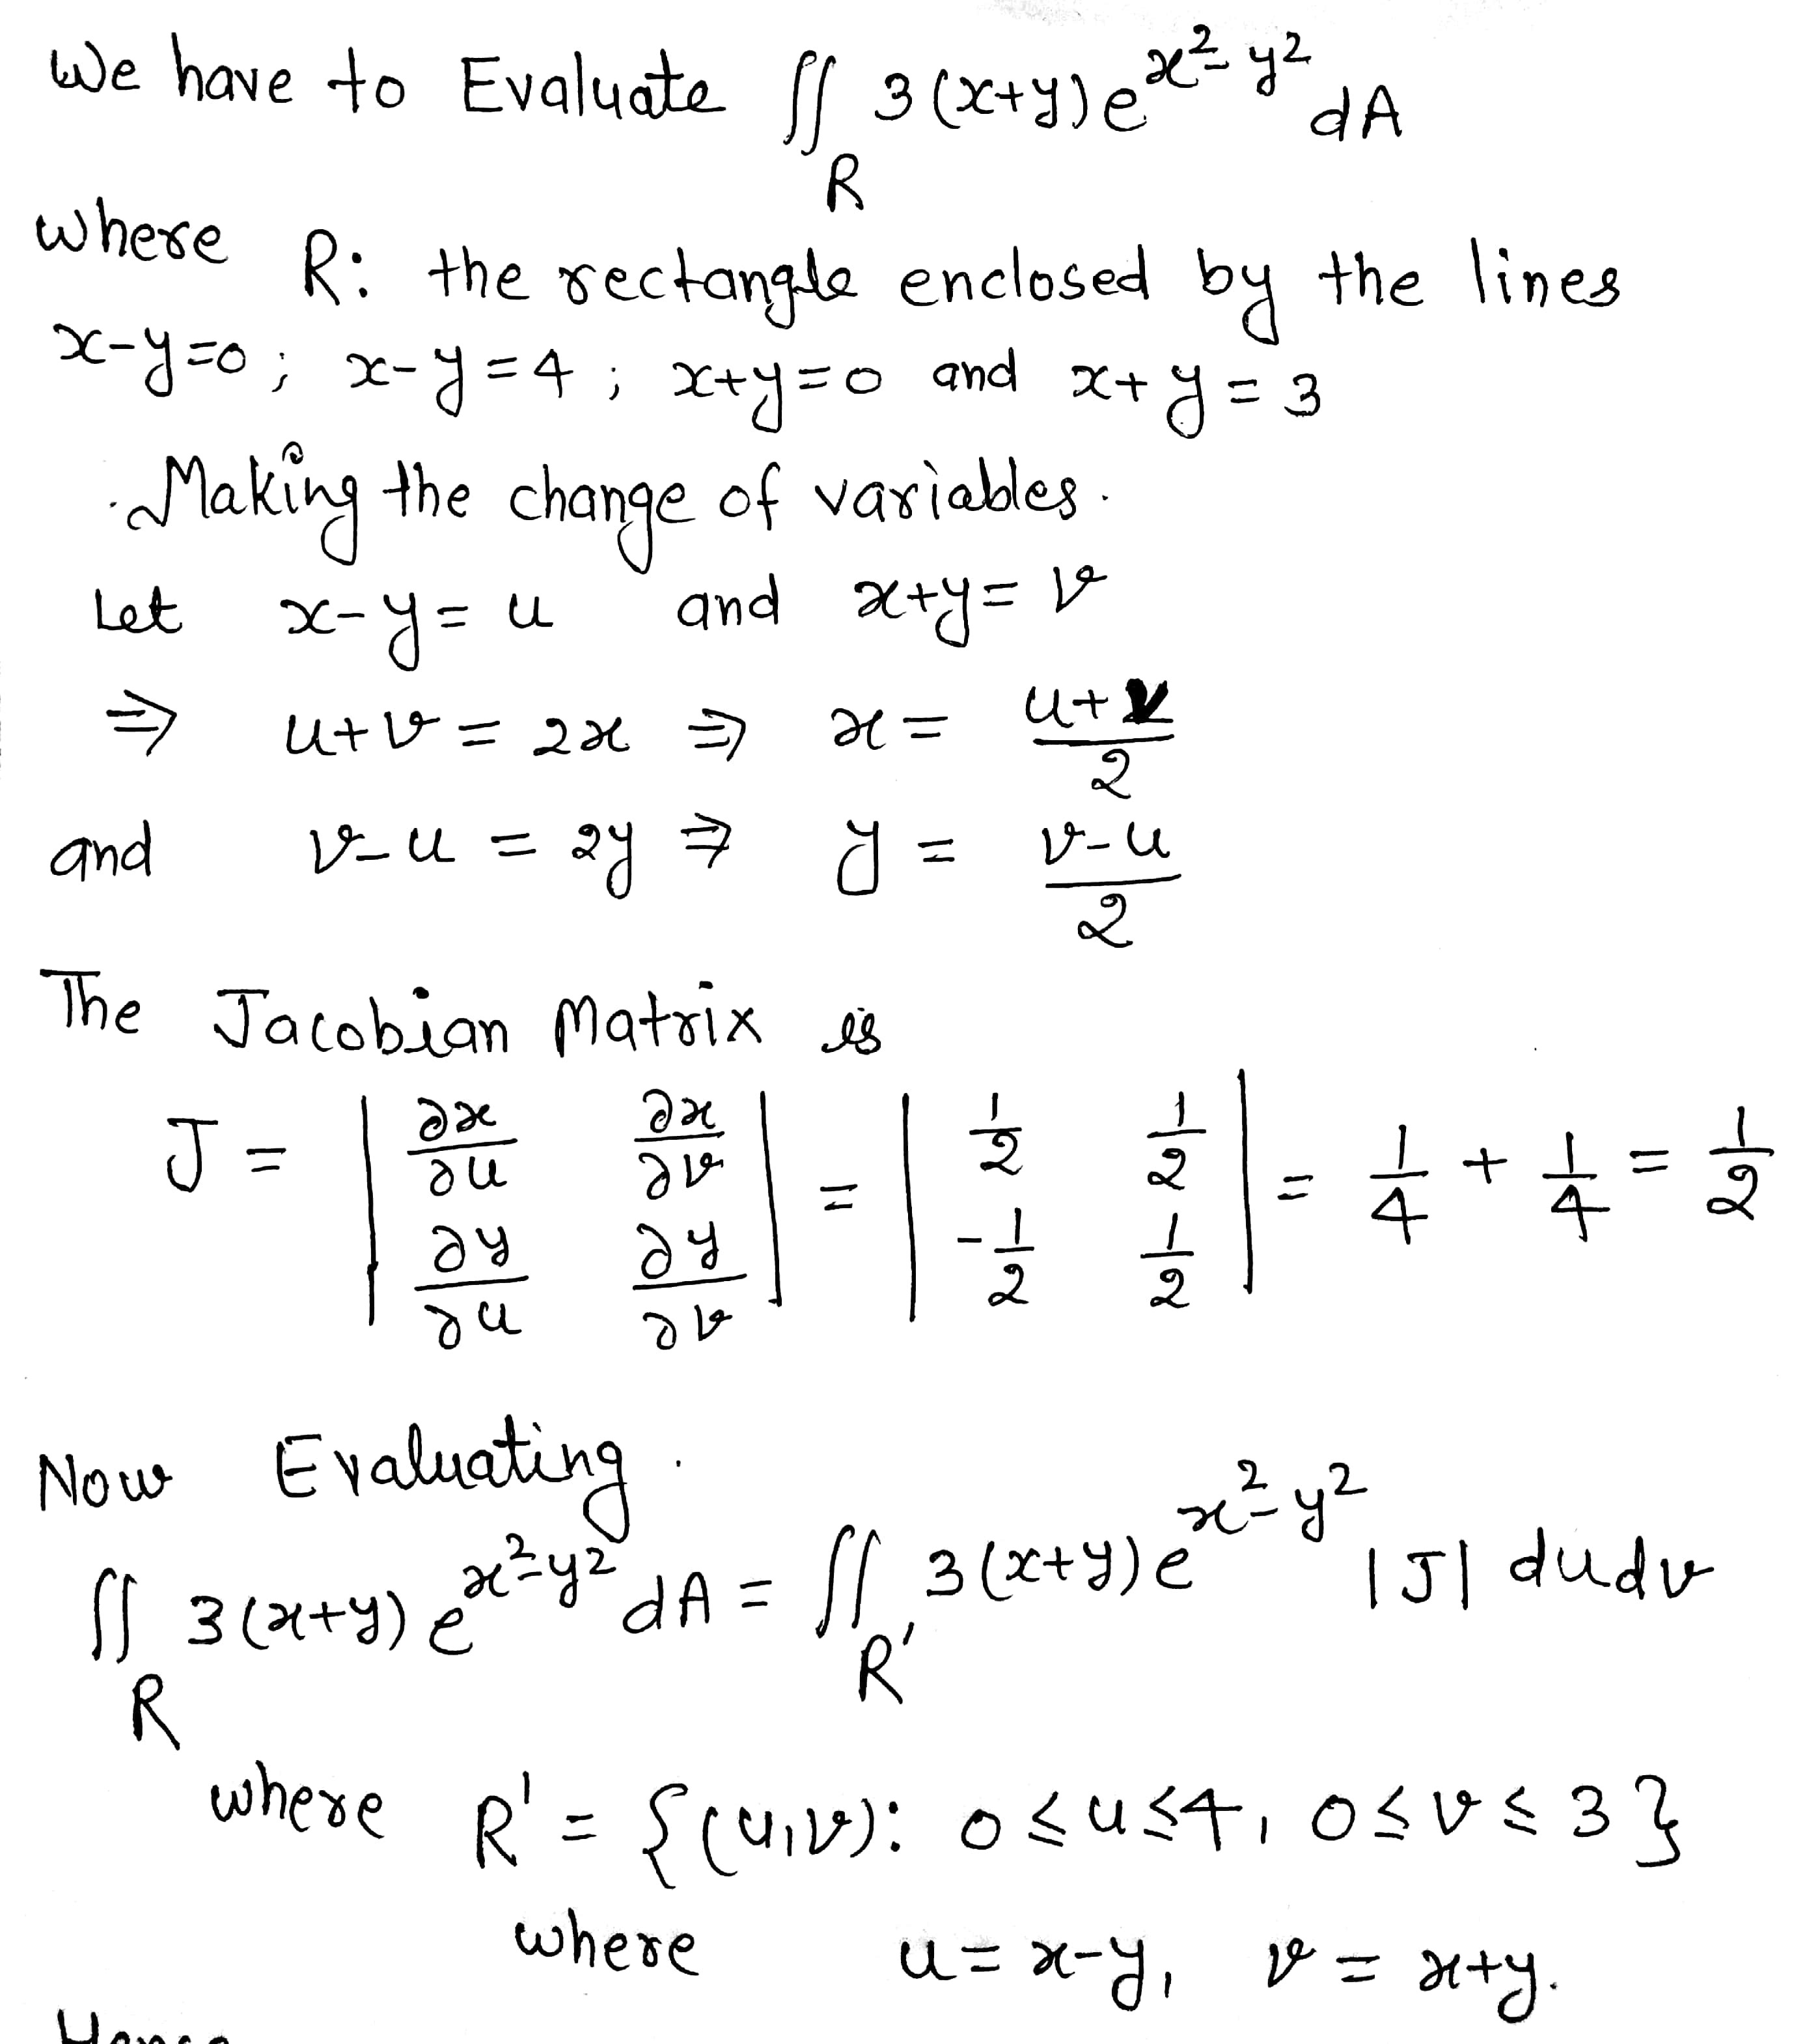 We have to Evaluate ∬_R 3(x+y)e^{x²-y²} dA
where R: the rectangle enclosed by the lines
x-y=0; x-y=4; x+y=0 and x+y=3
Making the change of variables.
Let x-y=u and x+y=v
⇒ u+v=2x ⇒ x=\frac{u+v}{2}
and v-u=2y ⇒ y=\frac{v-u}{2}
The Jacobian Matrix is
J = |∂x/∂u ∂x/∂v; ∂y/∂u ∂y/∂v| = |1/2 1/2; -1/2 1/2| = 1/4 + 1/4 = 1/2
Now Evaluating.
∬_R 3(x+y)e^{x²-y²} dA = ∬_{R'} 3(x+y)e^{x²-y²} |J| du dv
where R' = {(u,v): 0≤u≤4, 0≤v≤3}
where u=x-y, v=x+y.